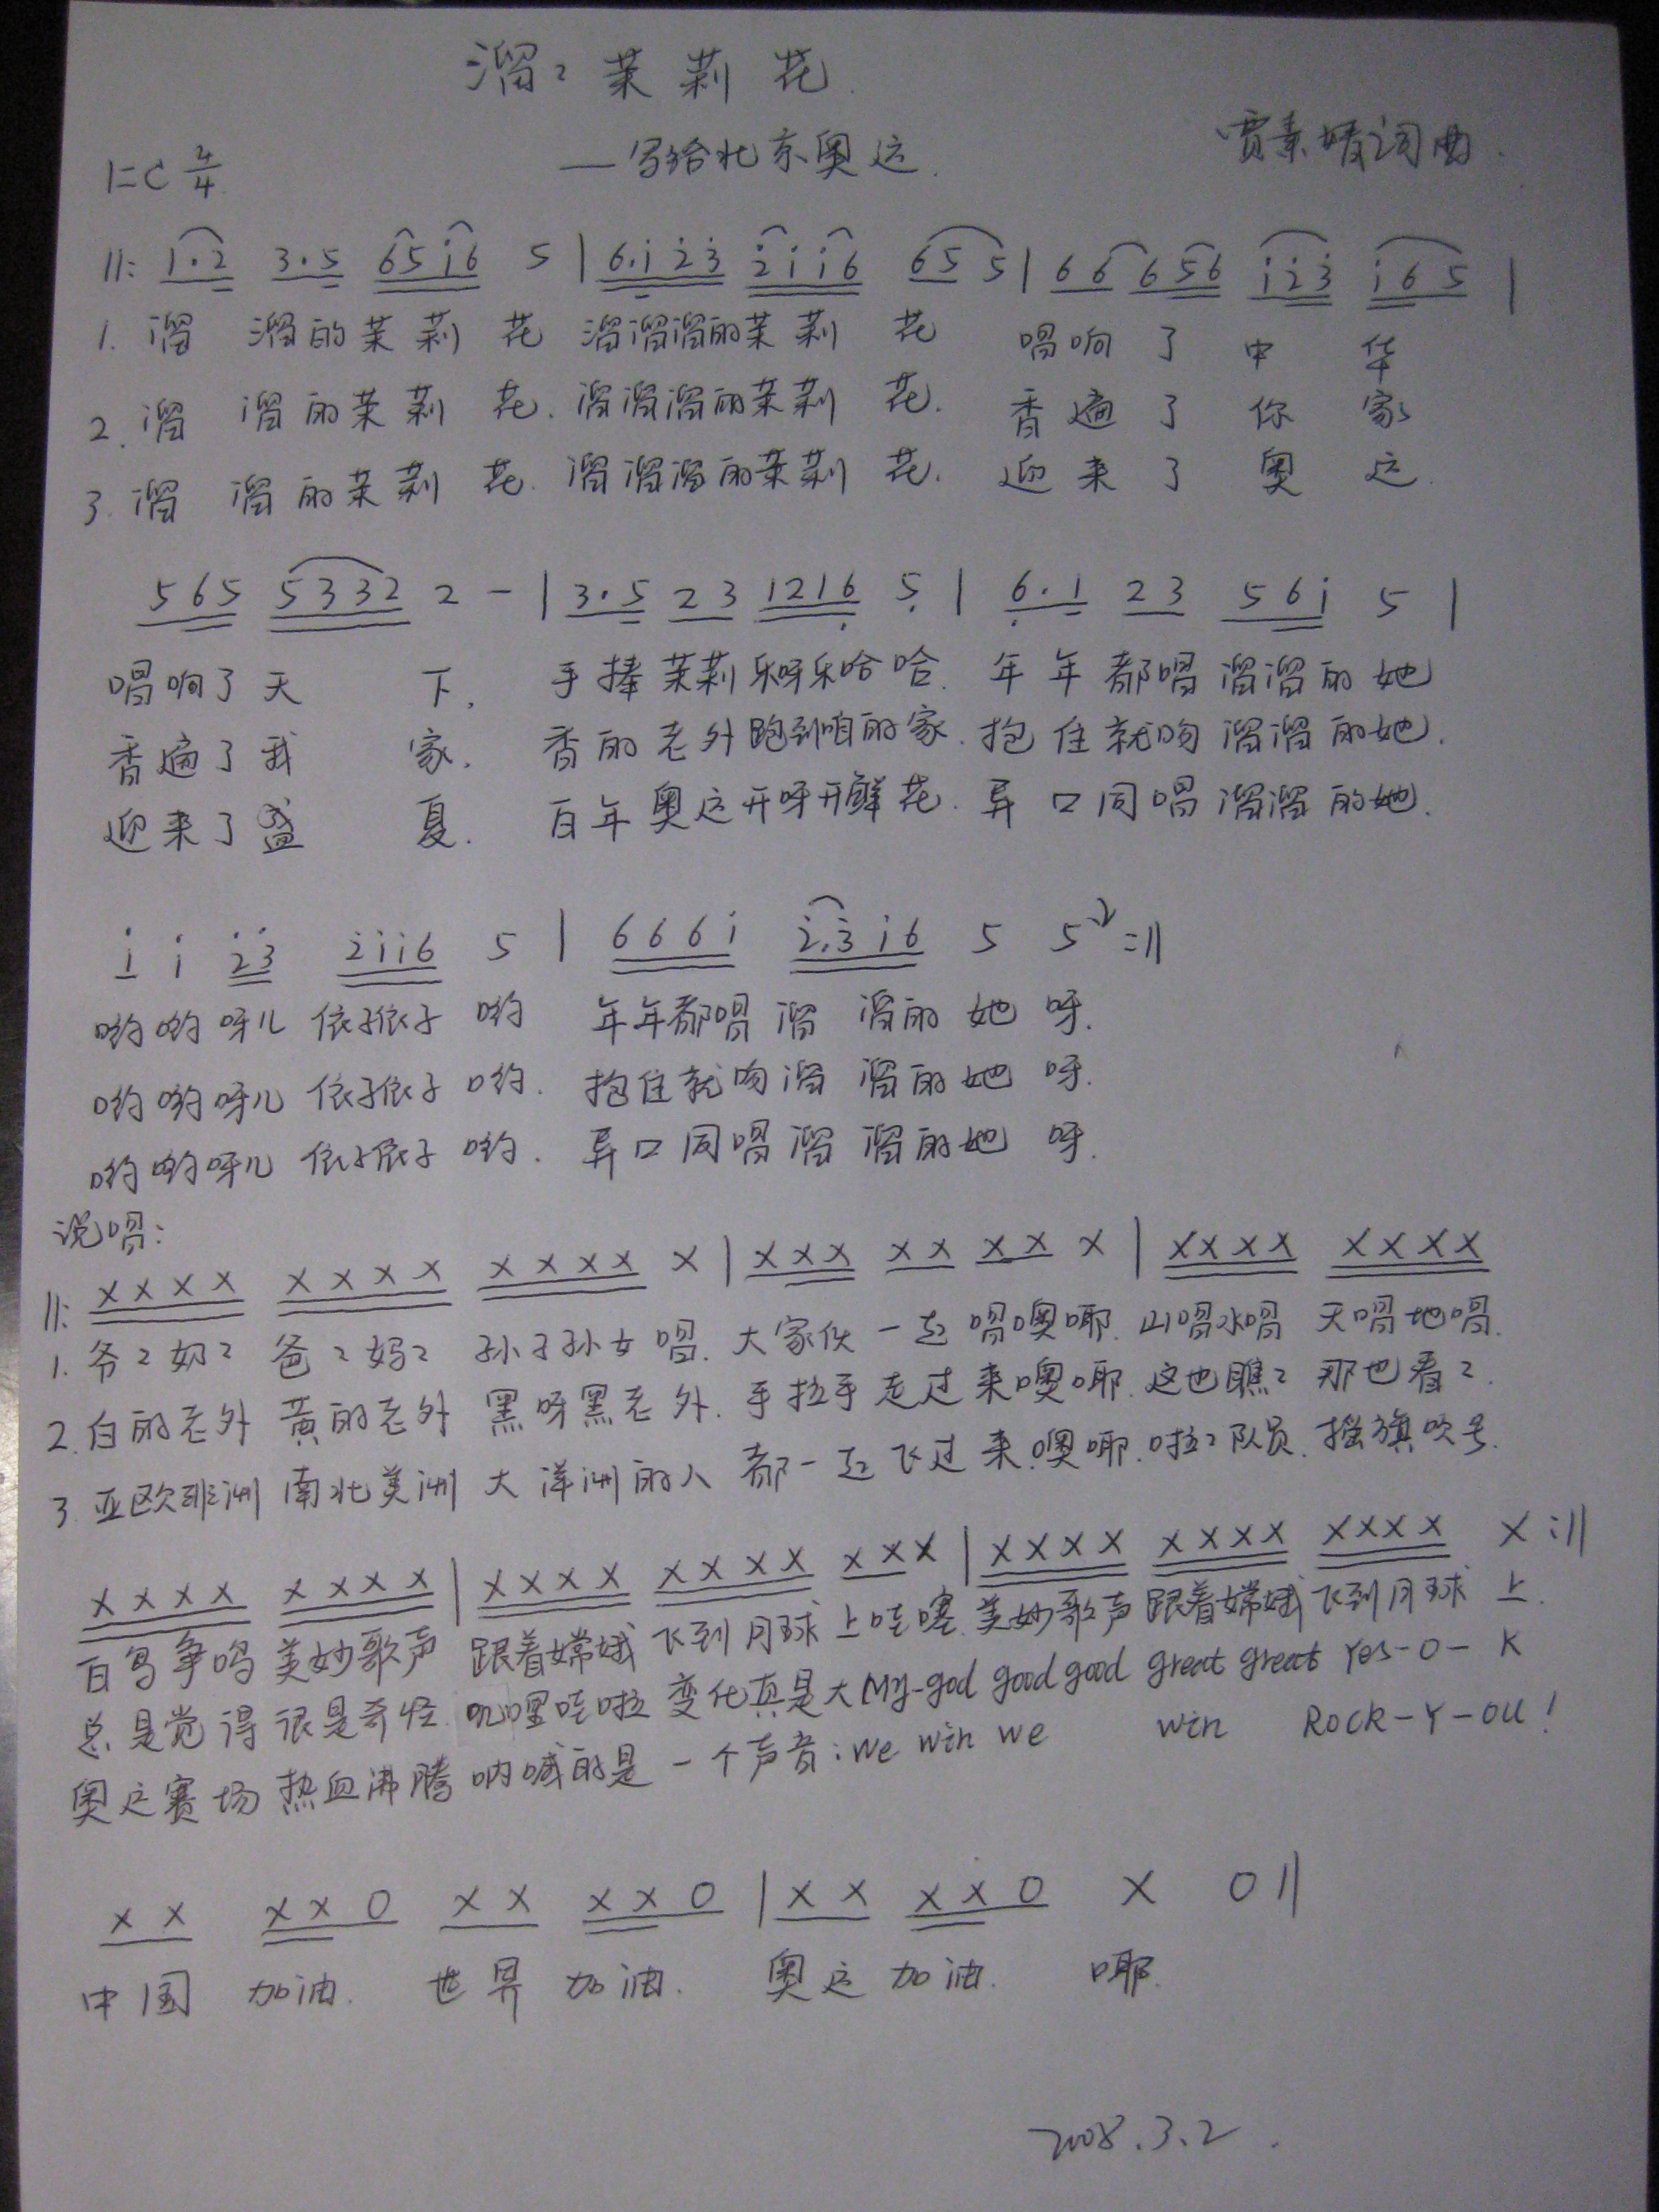 溜溜茉莉花
—写给北京奥运
贾素婧词曲
1=C 4/4
||: 1·2 3·5 65i6 5 | 6·i23 2ii6 65 5 | 66 656 i23 i65 |
1. 溜 溜的茉莉花 溜溜溜的茉莉花 唱响了中华
2. 溜 溜的茉莉花. 溜溜溜的茉莉花. 香遍了你家
3. 溜 溜的茉莉花. 溜溜溜的茉莉花. 迎来了奥运.
565 5332 2 - | 3·5 23 1216 5 | 6·1 23 56i 5 |
唱响了天下, 手捧茉莉乐呀乐哈哈. 年年都唱溜溜的她
香遍了我家. 香的老外跑到咱的家. 抱住就吻溜溜的她.
迎来了盛夏. 百年奥运开呀开鲜花. 异口同唱溜溜的她.
i i 23 2ii6 5 | 666i 2·3i6 5 5 :||
哟哟呀儿依子依子哟 年年都唱溜溜的她呀.
哟哟呀儿依子依子哟. 抱住就吻溜溜的她呀.
哟哟呀儿依子依子哟. 异口同唱溜溜的她呀.
说唱:
||: XXXX XXXX XXXX X | XXX XX XX X | XXXX XXXX
1. 爷2奶2 爸2妈2 孙子孙女唱. 大家伙一起唱噢耶. 山唱水唱 天唱地唱.
2. 白的老外 黄的老外 黑呀黑老外. 手拉手走过来噢耶. 这也瞧2 那也看2.
3. 亚欧非洲 南北美洲 大洋洲的人 都一起飞过来.噢耶. 啦2队员. 摇旗吹号.
XXXX XXXX | XXXX XXXX XXX | XXXX XXXX XXXX X :||
百鸟争鸣 美妙歌声 跟着嫦娥 飞到月球上哇噻. 美妙歌声 跟着嫦娥 飞到月球上.
总是觉得 很是奇怪. 叽哩哇啦 变化真是大 My-god good good great great Yes-O-K
奥运赛场 热血沸腾 呐喊的是一个声音: We win we win ROCK-Y-OU!
XX XX0 XX XX0 | XX XX0 X 0 ||
中国 加油. 世界 加油. 奥运 加油. 耶.
2008.3.2.